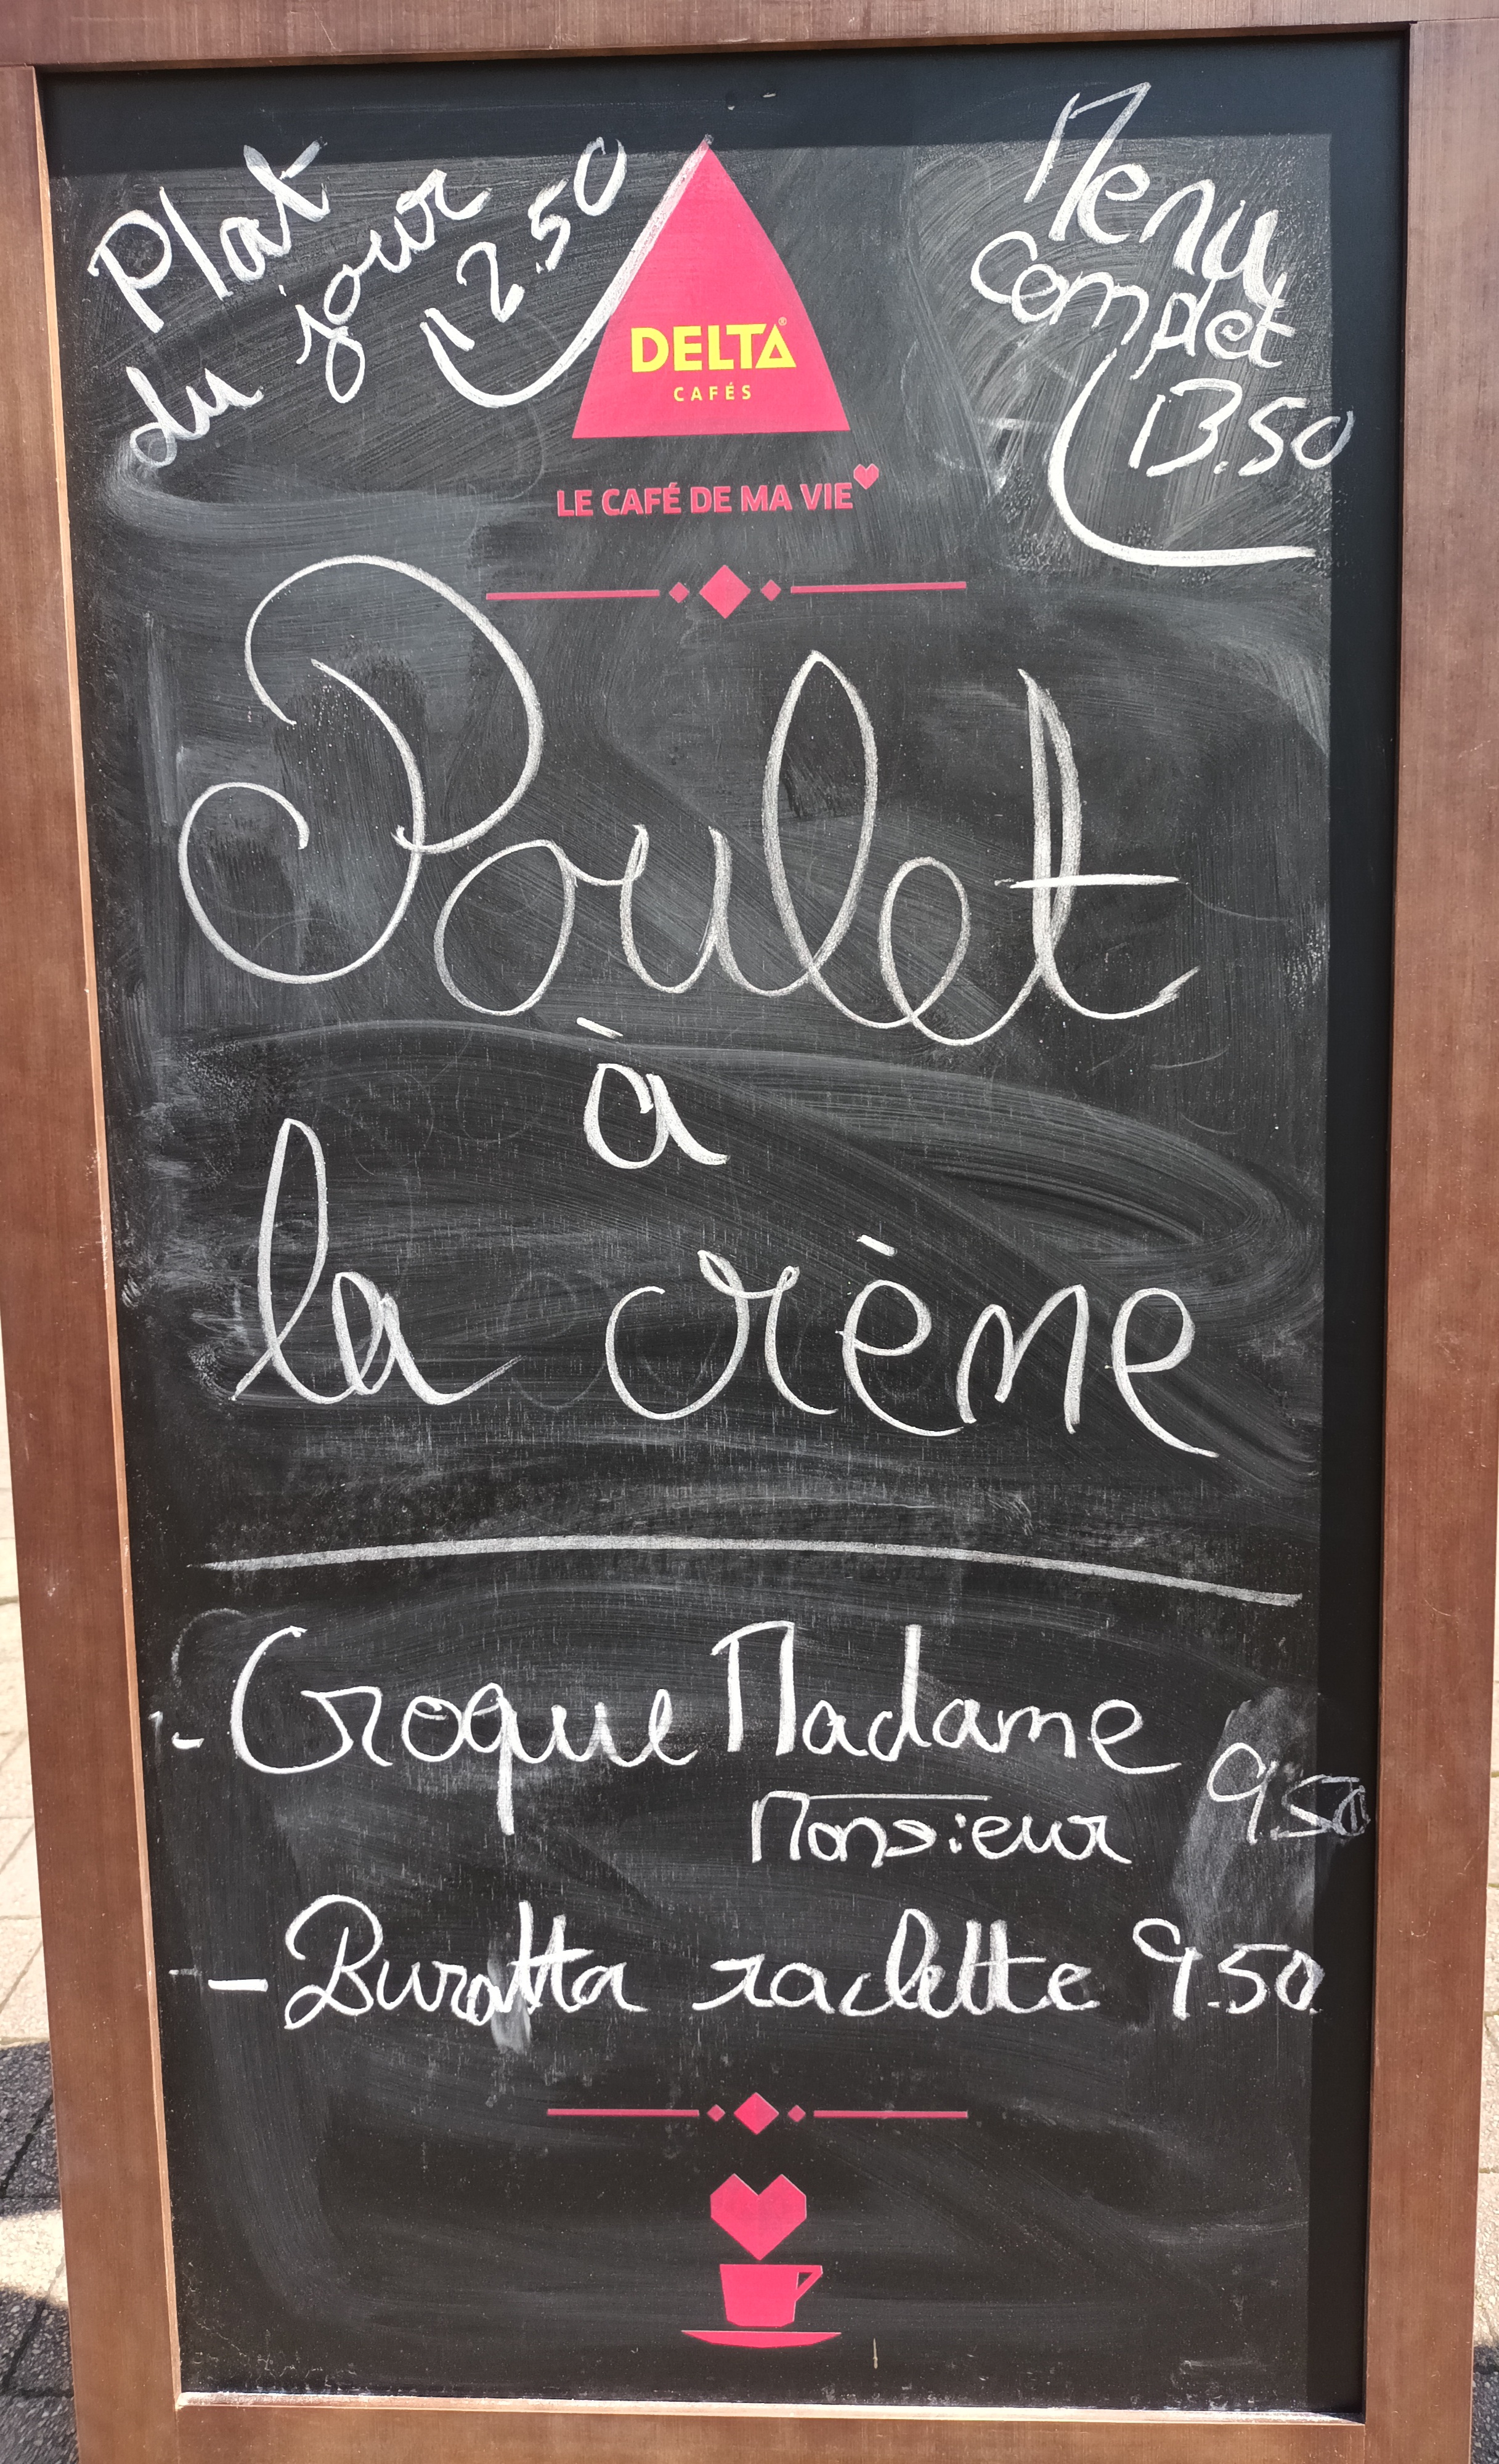 Plat
du jour
12.50
Menu
Complet
13.50
DELTA®
CAFÉS
LE CAFÉ DE MA VIE
Poulet
à
la crème
- Croque Madame
Monsieur 9.50
- Buratta raclette 9.50